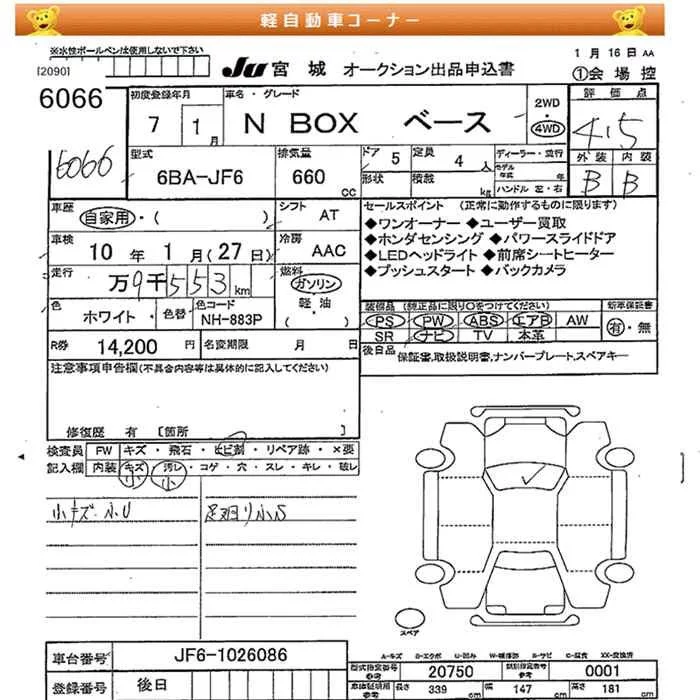 軽自動車コーナー
※水性ボールペンは使用しないで下さい
[2090]
JU 宮城 オークション出品申込書
1月 16日 AA
①会場控
6066
初度登録年月
7 1 月
車名・グレード
N BOX ベース
2WD
4WD
評価点
4.5
6066
型式
6BA-JF6
排気量
660 cc
ドア 5
形状
定員 4 人
積載 kg
ディーラー・並行
モデル年式 年
ハンドル 左・右
外装 内装
B B
車歴 自家用・( )
シフト AT
セールスポイント (正常に動作するものに限ります)
◆ワンオーナー ◆ユーザー買取
◆ホンダセンシング ◆パワースライドドア
◆LEDヘッドライト ◆前席シートヒーター
◆プッシュスタート ◆バックカメラ
車検 10 年 1 月 (27 日)
冷房 AAC
走行 万9千553km
燃料 ガソリン
軽・油
( )
色 ホワイト 色替
色コード NH-883P
装備品 (純正品に限り○をつけてください)
PS PW ABS エアB AW
SR ナビ TV 本革
新車保証書
有・無
R券 14,200 円
名変期限 月 日
後日品 保証書,取扱説明書,ナンバープレート,スペアキー
注意事項申告欄(不具合内容等は具体的に記入してください)
修復歴 有 [箇所 ]
検査員記入欄
FW キズ・飛石・ヒビ割・リペア跡・×要
内装 キズ・汚レ・コゲ・穴・スレ・キレ・破レ
小 小
小キズ・小U
足廻り小S
スペア
A-キズ B-エクボ U-凹み W-補修跡 S-サビ C-腐食 XX-交換済
車台番号 JF6-1026086
型式指定番号 参考 20750
類別指定番号 参考 0001
登録番号 後日
車庫証明用 参考 長さ 339 cm 幅 147 cm 高さ 181 cm